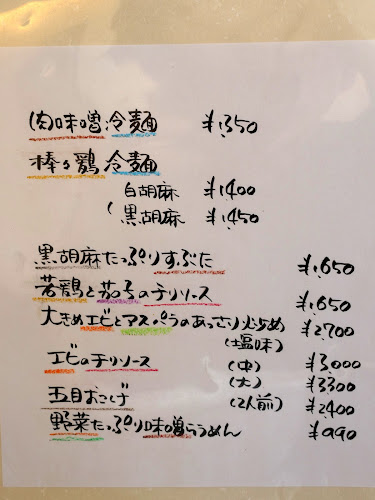 肉味噌冷麺 ¥1,350
棒々鶏冷麺
白胡麻 ¥1,400
黒胡麻 ¥1,450
黒胡麻たっぷりすぶた ¥1,650
若鶏と茄子のチリソース ¥1,650
大きめエビとアスパラのあっさり炒め ¥2,700
(塩味)
エビのチリソース (中) ¥3,000
(大) ¥3300
五目おこげ (2人前) ¥2400
野菜たっぷり味噌らうめん ¥990